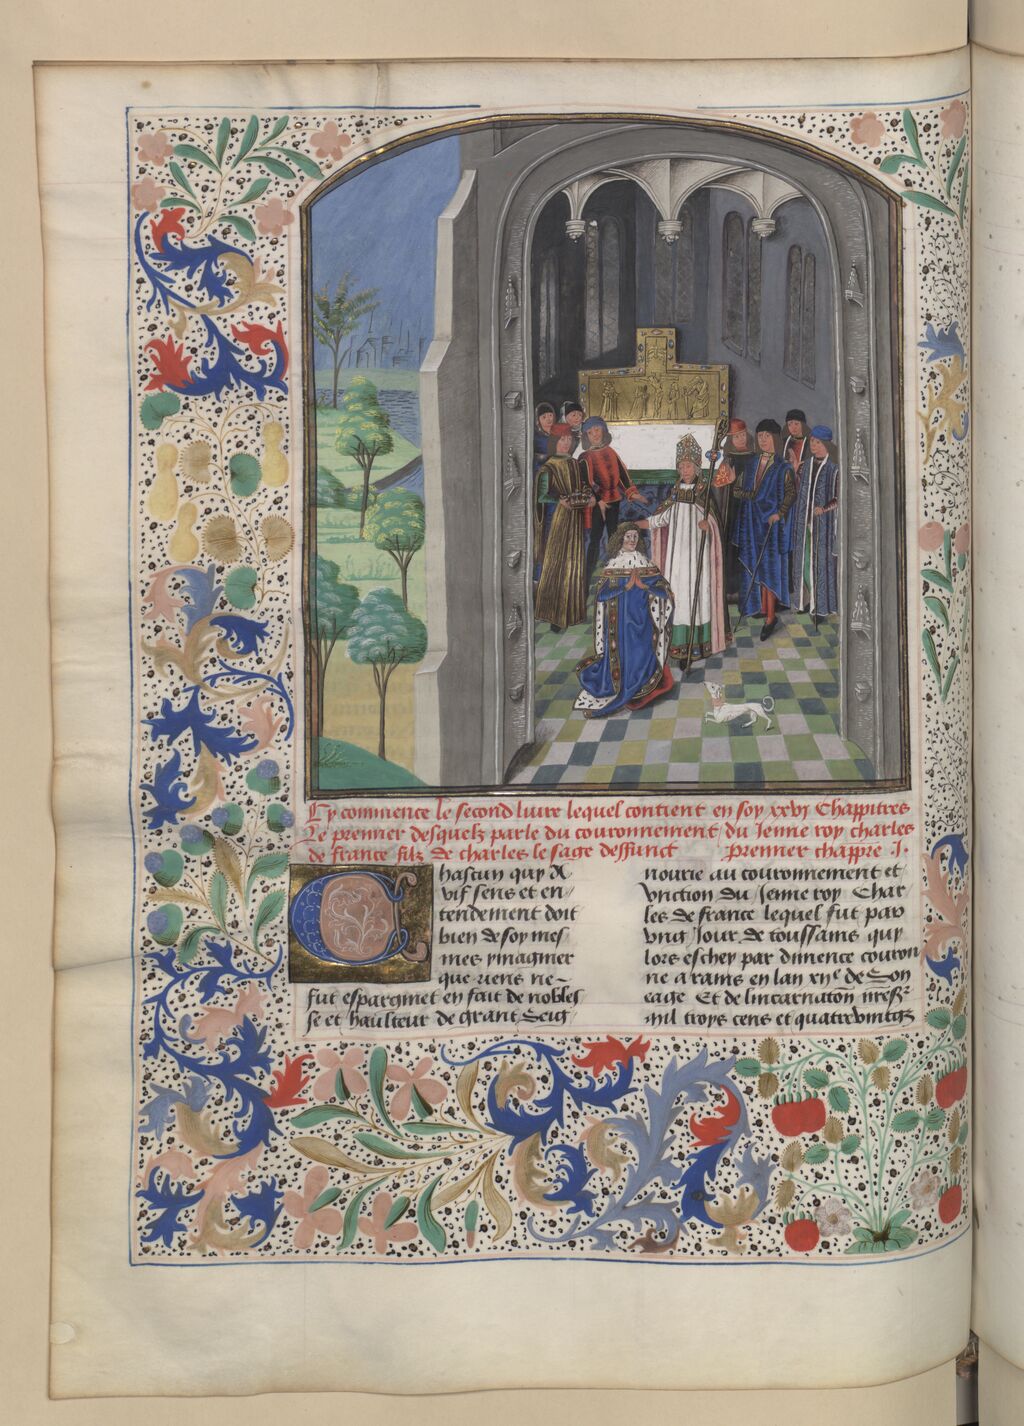 Cy commence le second liure lequel contient en soy xxvj Chappitres
Le premier desquelz parle du couronnement du Jenne roy charles
de france filz de charles le sage deffunct premier chapp͞re J.
Chascun quy A
vif sens et en
tendement doit
bien de soy mes
mes ymaginer
que riens ne
fut espargniet en fait de nobles
se et haulteur de grant Seig
nourie au couronnement et
vnction du Jenne roy Char
les de france lequel fut par
vng Jour de toussains quy
lors eschey par dimence couron
ne a rains en lan xije de Son
eage Et de lincarnatōn nre Sr
mil troys cens et quatrevintz